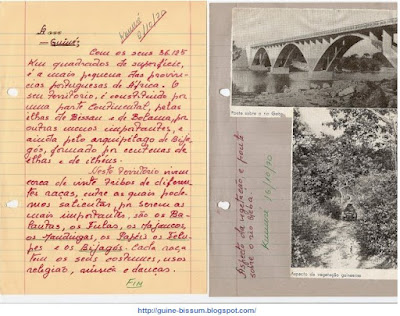 A nova
— Guiné;
Com os seus 36.125
Km quadrados de superfície,
é a mais pequena das provin-
cias portuguesas de África. O
seu território, é constituído por
uma parte Continental, pelas
ilhas de Bissau e de Bolama, por
outras menos importantes, e
ainda pelo arquipélago de Bija-
gós, formado por centenas de
ilhas e de ilheus.
Neste território vivem
cerca de vinte tribos de diferen-
tes raças, entre as quais pode-
mos salientar, por serem as
mais importantes, são os Ba-
lantas, os Fulas, os Manjacos,
os Mandingas, os Papéis os Felu-
pes e os Bijagós. Cada raça
tem os seus costumes, usos
religião, música e danças.
Fim
Ponte sobre o rio Geba
Aspecto da vegetação e ponte
sobre o rio Geba
Aspecto da vegetação guineense
http://guine-bissum.blogspot.com/